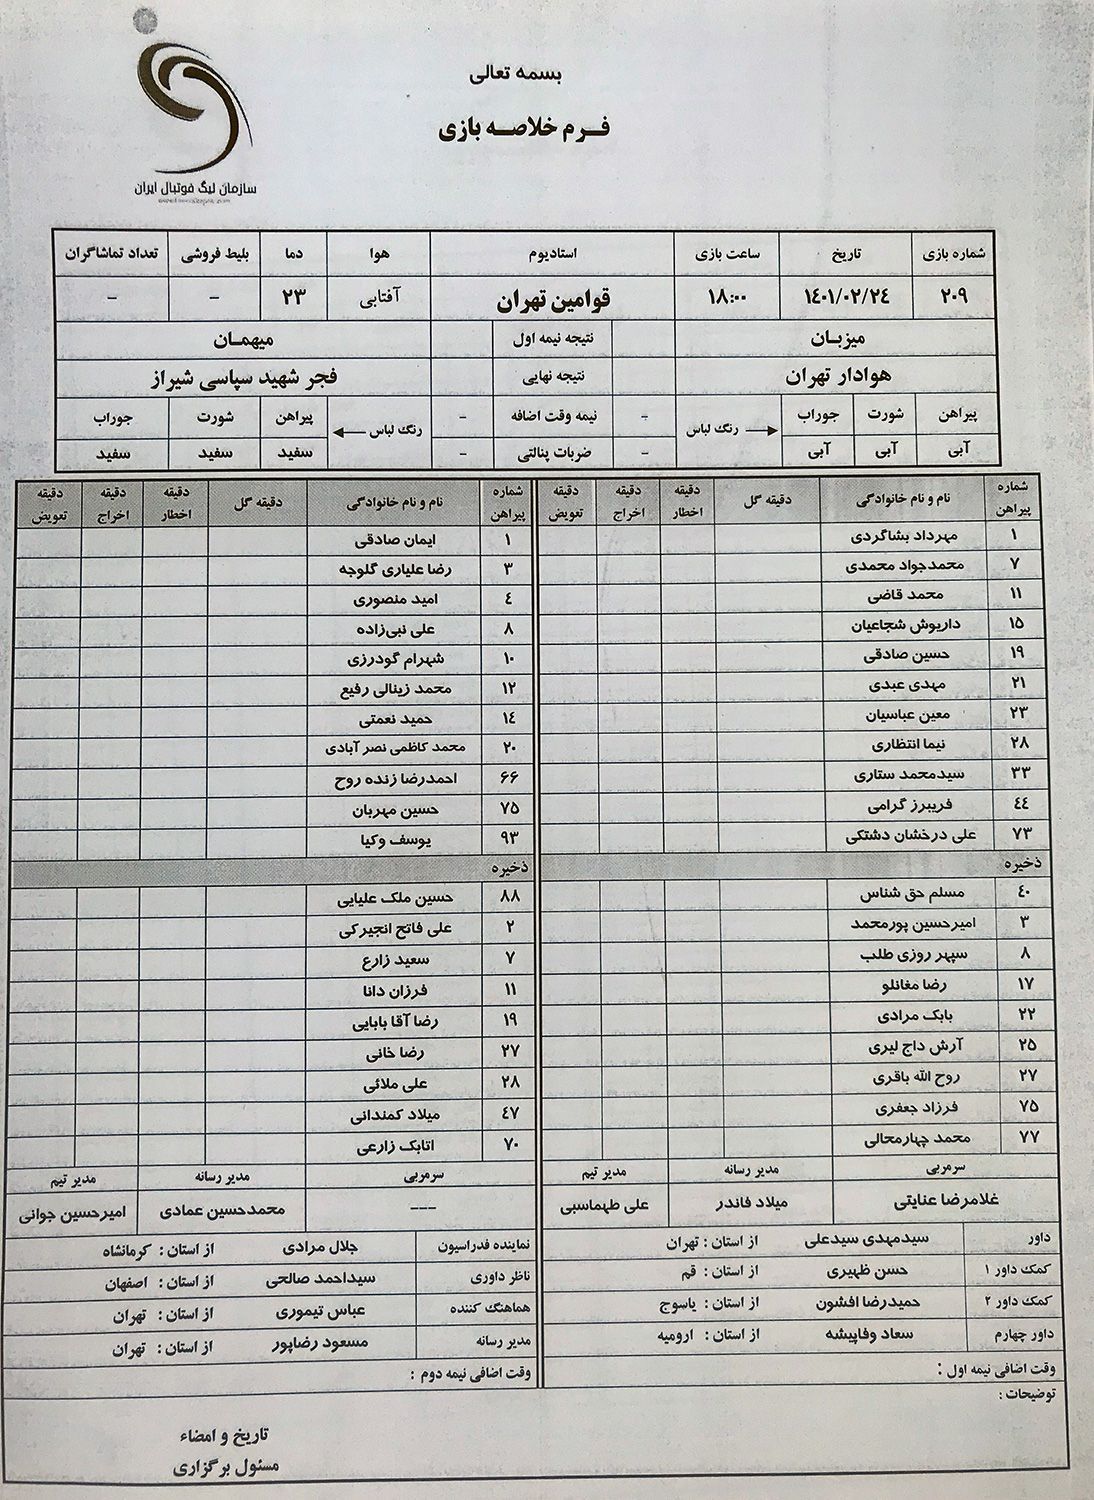 بسمه تعالی
فـرم خلاصـه بازی
سازمان لیگ فوتبال ایران
شماره بازی تاریخ ساعت بازی استادیوم هوا دما بلیط فروشی تعداد تماشاگران
۲۰۹ ۱۴۰۱/۰۲/۲۴ ۱۸:۰۰ قوامین تهران آفتابی ۲۳ – –
میزبـان نتیجه نیمه اول میهمـان
هوادار تهران نتیجه نهایی فجر شهید سپاسی شیراز
پیراهن شورت جوراب رنگ لباس – نیمه وقت اضافه – رنگ لباس پیراهن شورت جوراب
آبی آبی آبی – ضربات پنالتی – سفید سفید سفید
شماره پیراهن نام و نام خانوادگی دقیقه گل دقیقه اخطار دقیقه اخراج دقیقه تعویض
۱ مهرداد بشاگردی
۷ محمدجواد محمدی
۱۱ محمد قاضی
۱۵ داریوش شجاعیان
۱۹ حسین صادقی
۲۱ مهدی عبدی
۲۳ معین عباسیان
۲۸ نیما انتظاری
۳۳ سیدمحمد ستاری
۴۴ فریبرز گرامی
۷۳ علی درخشان دشتکی
ذخیره
۴۰ مسلم حق شناس
۳ امیرحسین پورمحمد
۸ سپهر روزی طلب
۱۷ رضا مغانلو
۲۲ بابک مرادی
۲۵ آرش داج لیری
۲۷ روح الله باقری
۷۵ فرزاد جعفری
۷۷ محمد چهارمحالی
سرمربی مدیر رسانه مدیر تیم
غلامرضا عنایتی میلاد فاندر علی طهماسبی
داور سیدمهدی سیدعلی از استان : تهران
کمک داور ۱ حسن ظهیری از استان : قم
کمک داور ۲ حمیدرضا افشون از استان : یاسوج
داور چهارم سعاد وفاپیشه از استان : ارومیه
وقت اضافی نیمه اول :
شماره پیراهن نام و نام خانوادگی دقیقه گل دقیقه اخطار دقیقه اخراج دقیقه تعویض
۱ ایمان صادقی
۳ رضا علیاری گلوجه
۴ امید منصوری
۸ علی نبی‌زاده
۱۰ شهرام گودرزی
۱۲ محمد زینالی رفیع
۱۴ حمید نعمتی
۲۰ محمد کاظمی نصر آبادی
۶۶ احمدرضا زنده روح
۷۵ حسین مهربان
۹۳ یوسف وکیا
ذخیره
۸۸ حسین ملک علیایی
۲ علی فاتح انجیرکی
۷ سعید زارع
۱۱ فرزان دانا
۱۹ رضا آقا بابایی
۲۷ رضا خانی
۲۸ علی ملائی
۴۷ میلاد کمندانی
۷۰ اتابک زارعی
سرمربی مدیر رسانه مدیر تیم
--- محمدحسین عمادی امیرحسین جوانی
نماینده فدراسیون جلال مرادی از استان : کرمانشاه
ناظر داوری سیداحمد صالحی از استان : اصفهان
هماهنگ کننده عباس تیموری از استان : تهران
مدیر رسانه مسعود رضاپور از استان : تهران
وقت اضافی نیمه دوم :
توضیحات :
تاریخ و امضاء
مسئول برگزاری